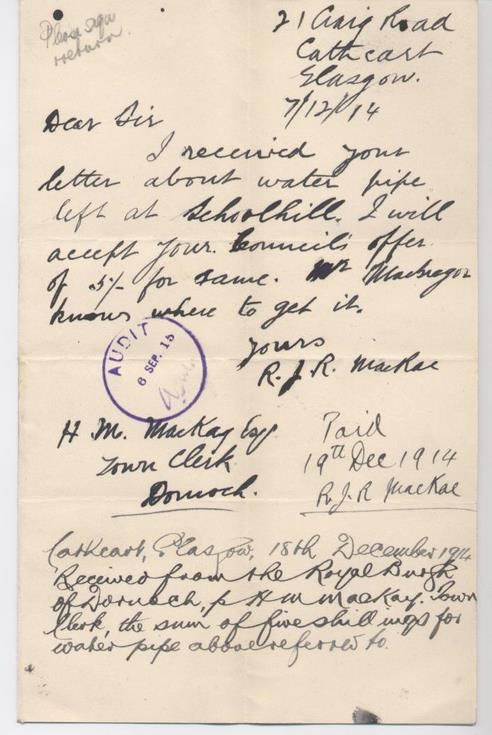 Please sign
return.
21 Craig Road
Cathcart
Glasgow.
7/12/14
Dear Sir
I received your
letter about water pipe
left at Schoolhill. I will
accept your Council's offer
of 5/- for same. Mr Macgregor
knows where to get it.
yours
R. J. R. MacKae
AUDIT
8 SEP. 15
H. M. MacKay Esq
Town Clerk
Dornoch.
Paid
19th Dec 1914
R. J. R MacKae
Cathcart, Glasgow, 18th December 1914
Received from the Royal Burgh
of Dornoch, p H M MacKay. Town
Clerk, the sum of five shillings for
water pipe above referred to.